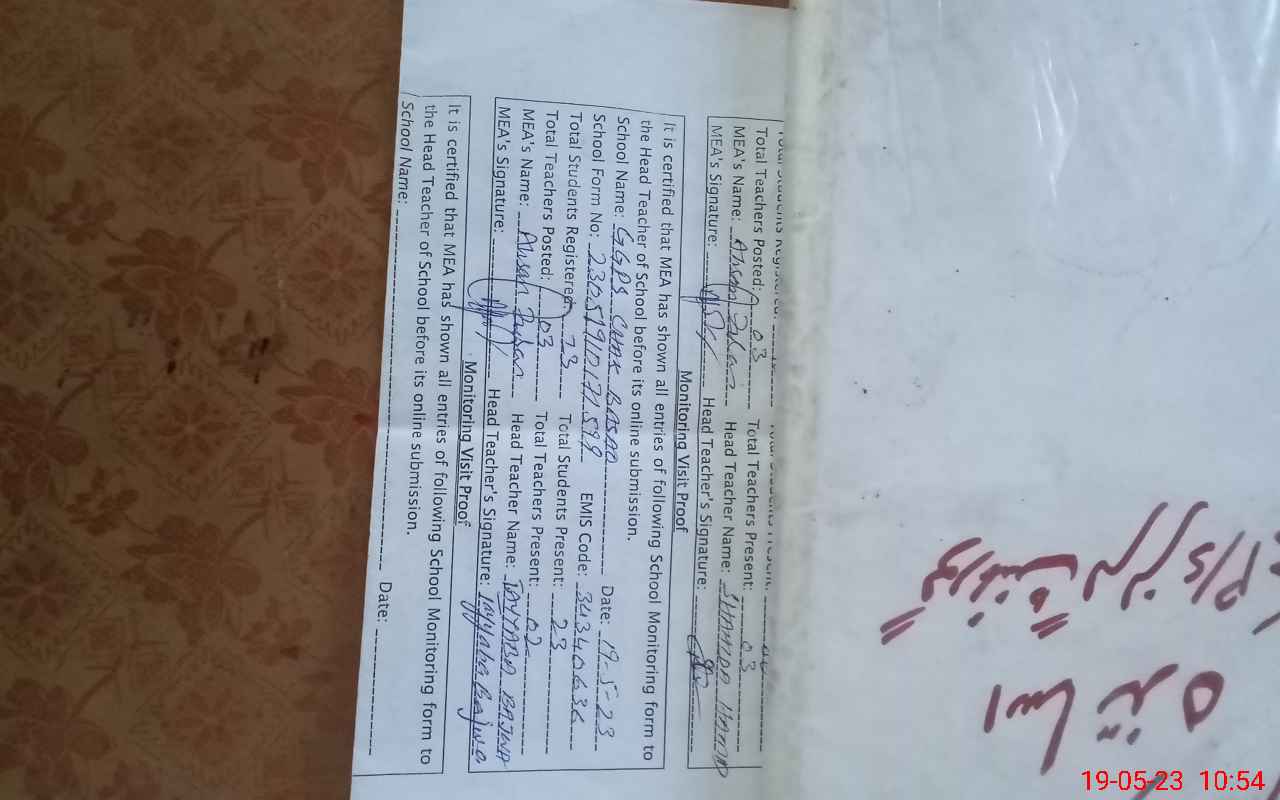 Total Teachers Posted: 03 Total Teachers Present: 03
MEA's Name: Ahsan Head Teacher Name:
MEA's Signature: Head Teacher's Signature:
Monitoring Visit Proof
It is certified that MEA has shown all entries of following School Monitoring form to
the Head Teacher of School before its online submission.
School Name: GGPS CHAK BASAD Date: 19-5-23
School Form No: EMIS Code: 34340636
Total Students Registered: 73 Total Students Present: 23
Total Teachers Posted: 03 Total Teachers Present: 02
MEA's Name: Ahsan Head Teacher Name: TAYYABA BAJWA
MEA's Signature: Head Teacher's Signature: Tayyaba Bajwa
Monitoring Visit Proof
It is certified that MEA has shown all entries of following School Monitoring form to
the Head Teacher of School before its online submission.
School Name: Date:
اساتذہ
19-05-23 10:54